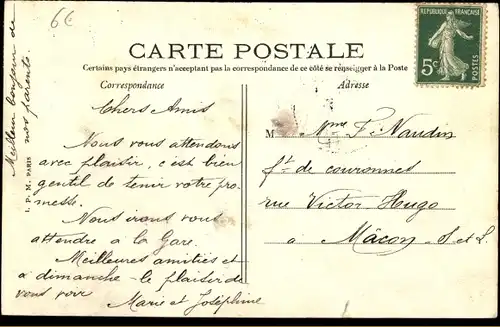 6€
CARTE POSTALE
Certains pays étrangers n'acceptant pas la correspondance de ce côté se renseigner à la Poste
Correspondance
Adresse
REPUBLIQUE FRANÇAISE
5c
POSTES
Meilleur bonjour de
nos parents
I. P. M. PARIS
Chers Amis
Nous vous attendons
avec plaisir, c'est bien
gentil de tenir votre pro-
messe.
Nous irons vous
attendre a la Gare.
Meilleures amitiés et
a dimanche - le plaisir de
vous voir
Marie et Joséphine
M me F. Naudin
ft. de couronnes
rue Victor Hugo
a Mâcon S. et L.